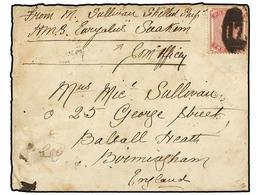 From M. Sullivan Skilled Shipt
H.M.S. Euryalus Suakim
Com Officer
Mrs Micl Sullivan
25 George Street
Balsall Heath
Birmingham
England